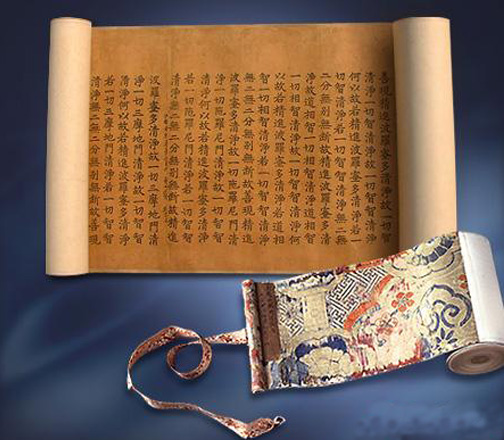 善現精進波羅蜜多清淨故一切智
清淨一切智清淨故一切智智清淨
何以故若精進波羅蜜多清淨若一切
智清淨若一切智智清淨無二無
二分無別無斷故精進波羅蜜多清
淨故道相智一切相智清淨道相智
一切相智清淨故一切智智清淨何
以故若精進波羅蜜多清淨若道相
智一切相智清淨若一切智智清淨
無二無二分無別無斷故善現精進
波羅蜜多清淨故一切陀羅尼門清
淨一切陀羅尼門清淨故一切智智
清淨何以故若精進波羅蜜多清淨
若一切陀羅尼門清淨若一切智智
清淨無二無二分無別無斷故精進
波羅蜜多清淨故一切三摩地門清
淨一切三摩地門清淨故一切智智
清淨何以故若精進波羅蜜多清淨
若一切三摩地門清淨若一切智智
清淨無二無二分無別無斷故善現